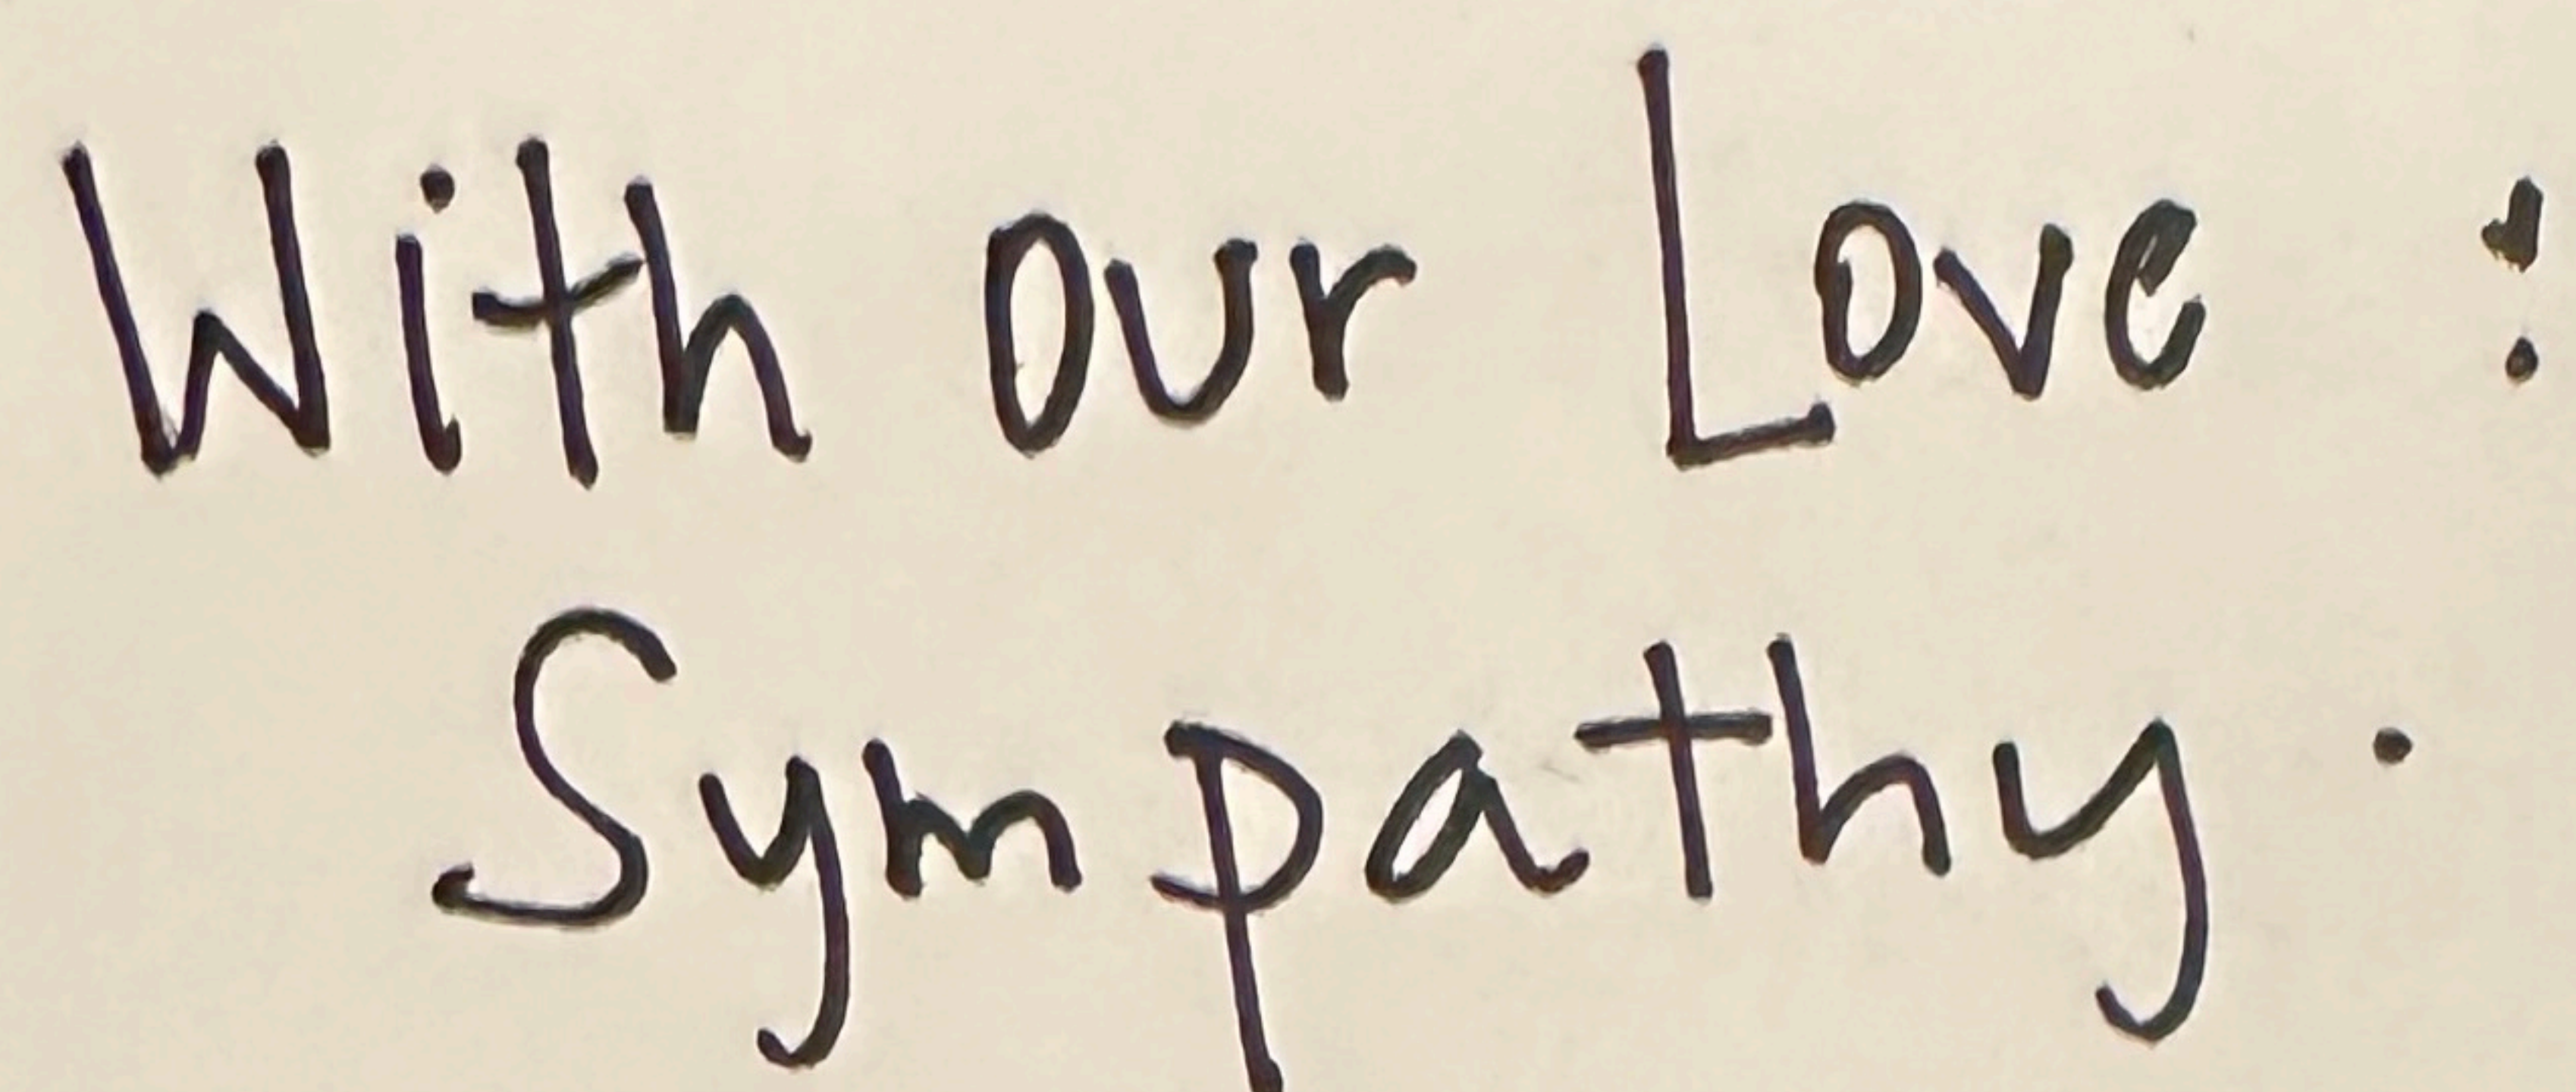 With our Love :
Sympathy .